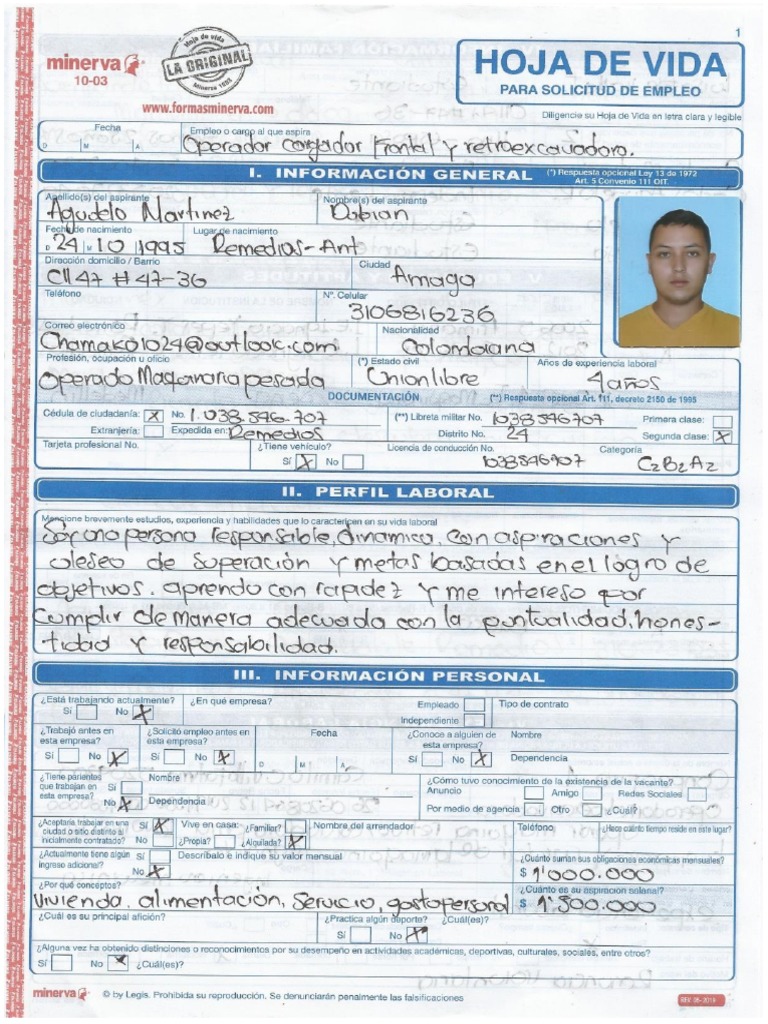 1
minerva
10-03
Hoja de vida
LA ORIGINAL
Minerva 1003
www.formasminerva.com
HOJA DE VIDA
PARA SOLICITUD DE EMPLEO
Diligencie su Hoja de Vida en letra clara y legible
Fecha
D M A
Empleo o cargo al que aspira
Operador cargador Frontal y retroexcavadora.
I. INFORMACIÓN GENERAL
(*) Respuesta opcional Ley 13 de 1972
Art. 5 Convenio 111 OIT.
Apellido(s) del aspirante Nombre(s) del aspirante
Agudelo Martinez Dubian
Fecha de nacimiento Lugar de nacimiento
D 24 M 10 A 1995 Remedios-Ant
Dirección domicilio / Barrio Ciudad
Cll 47 # 47-36 Amaga
Teléfono Nº. Celular
3106816236
Correo electrónico Nacionalidad
Chamako1024@outlook.com Colombiana
Profesión, ocupación u oficio (*) Estado civil Años de experiencia laboral
Operado Maquinaria pesada Union libre 4 años
DOCUMENTACIÓN (**) Respuesta opcional Art. 111, decreto 2150 de 1995
Cédula de ciudadanía: X No. 1.038.546.707 (**) Libreta militar No. 1038546707 Primera clase:
Extranjería: Expedida en: Remedios Distrito No. 24 Segunda clase: X
Tarjeta profesional No. ¿Tiene vehículo? Licencia de conducción No. Categoría
Sí X No 1038546707 C2B2A2
II. PERFIL LABORAL
Mencione brevemente estudios, experiencia y habilidades que lo caractericen en su vida laboral
Soy una persona responsable, dinamica, con aspiraciones y
deseo de superación y metas basadas en el logro de
objetivos. aprendo con rapidez y me intereso por
cumplir de manera adecuada con la puntualidad, hones-
tidad y responsabilidad.
III. INFORMACIÓN PERSONAL
¿Está trabajando actualmente? ¿En qué empresa? Empleado Tipo de contrato
Sí No X Independiente
¿Trabajó antes en esta empresa? ¿Solicitó empleo antes en esta empresa? Fecha ¿Conoce a alguien de esta empresa? Nombre
Sí No X Sí No X D M A Sí No X Dependencia
¿Tiene parientes que trabajan en esta empresa? Sí Nombre ¿Cómo tuvo conocimiento de la existencia de la vacante?
Anuncio Amigo Redes Sociales
No X Dependencia Por medio de agencia Otro ¿Cuál?
¿Aceptaría trabajar en una ciudad o sitio distinto al inicialmente contratado? Sí X No Vive en casa: ¿Familiar? Nombre del arrendador Teléfono ¿Hace cuánto tiempo reside en este lugar?
¿Propia? ¿Alquilada? X
¿Actualmente tiene algún ingreso adicional? Sí No X Descríbalo e indique su valor mensual ¿Cuánto suman sus obligaciones económicas mensuales?
$ 1'000.000
¿Por qué conceptos? ¿Cuánto es su aspiración salarial?
Vivienda, alimentación, Servicio, gasto personal $ 1'500.000
¿Cuál es su principal afición? ¿Practica algún deporte? ¿Cuál(es)?
Sí No X
¿Alguna vez ha obtenido distinciones o reconocimientos por su desempeño en actividades académicas, deportivas, culturales, sociales, entre otros?
Sí No X ¿Cuál(es)?
minerva © by Legis. Prohibida su reproducción. Se denunciarán penalmente las falsificaciones